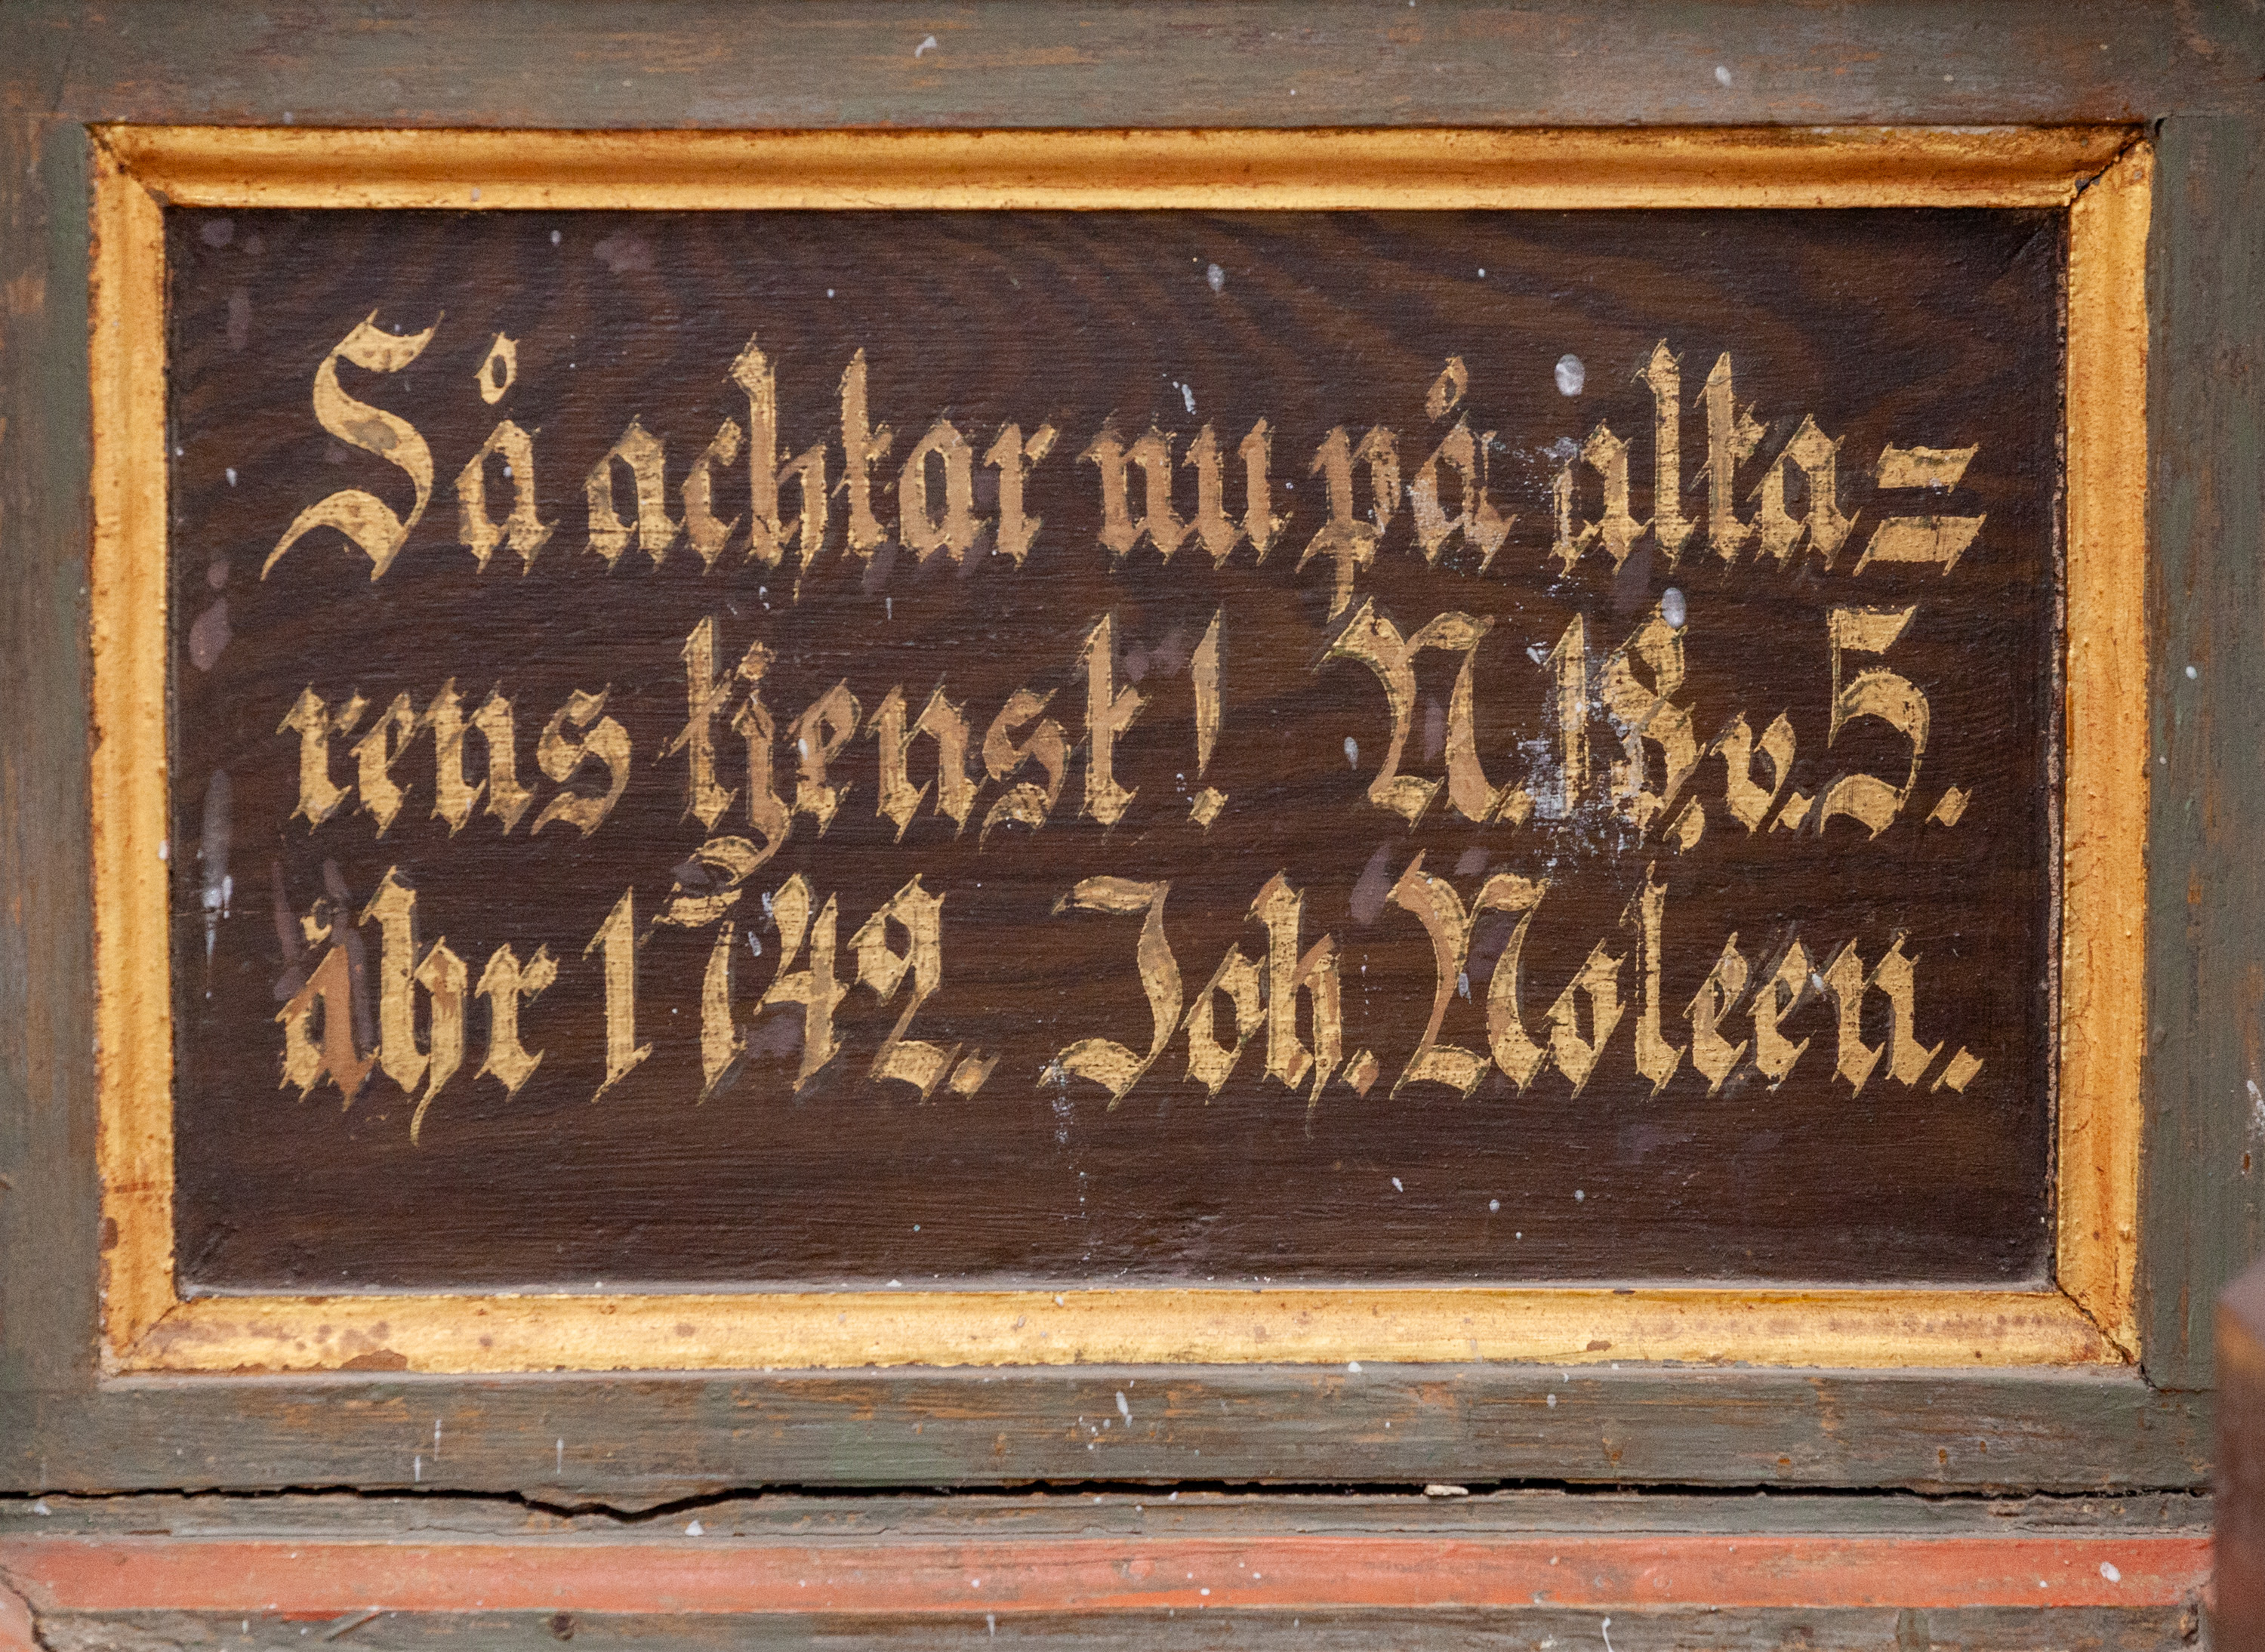 Så achtar nu på alta=
rens tjenst! N.18,v.5.
åhr 1742. Joh. Noleen.